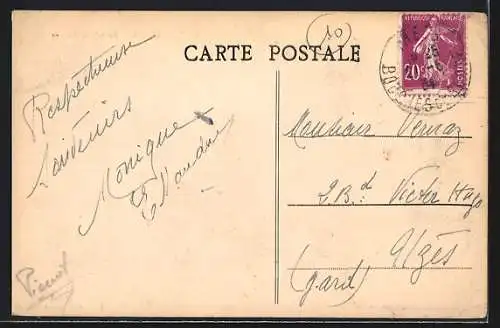 10
CARTE POSTALE
REPUBLIQUE FRANÇAISE
20
POSTES
Respectueux
Souvenirs
Monique
Pierrot
Monsieur Vernaz
2. B.d Victor Hugo
Uzès
(Gard)